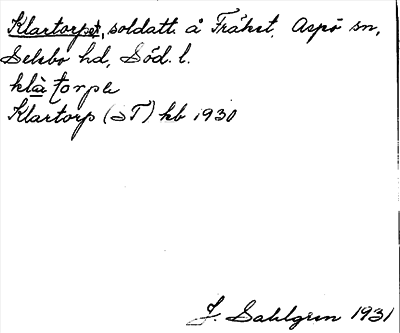 Klartorpet, soldatt. å Fräkst. Aspö sn,
Selebo hd, Söd. l.
klà torpe
Klartorp (ST) kb 1930
J. Sahlgren 1931